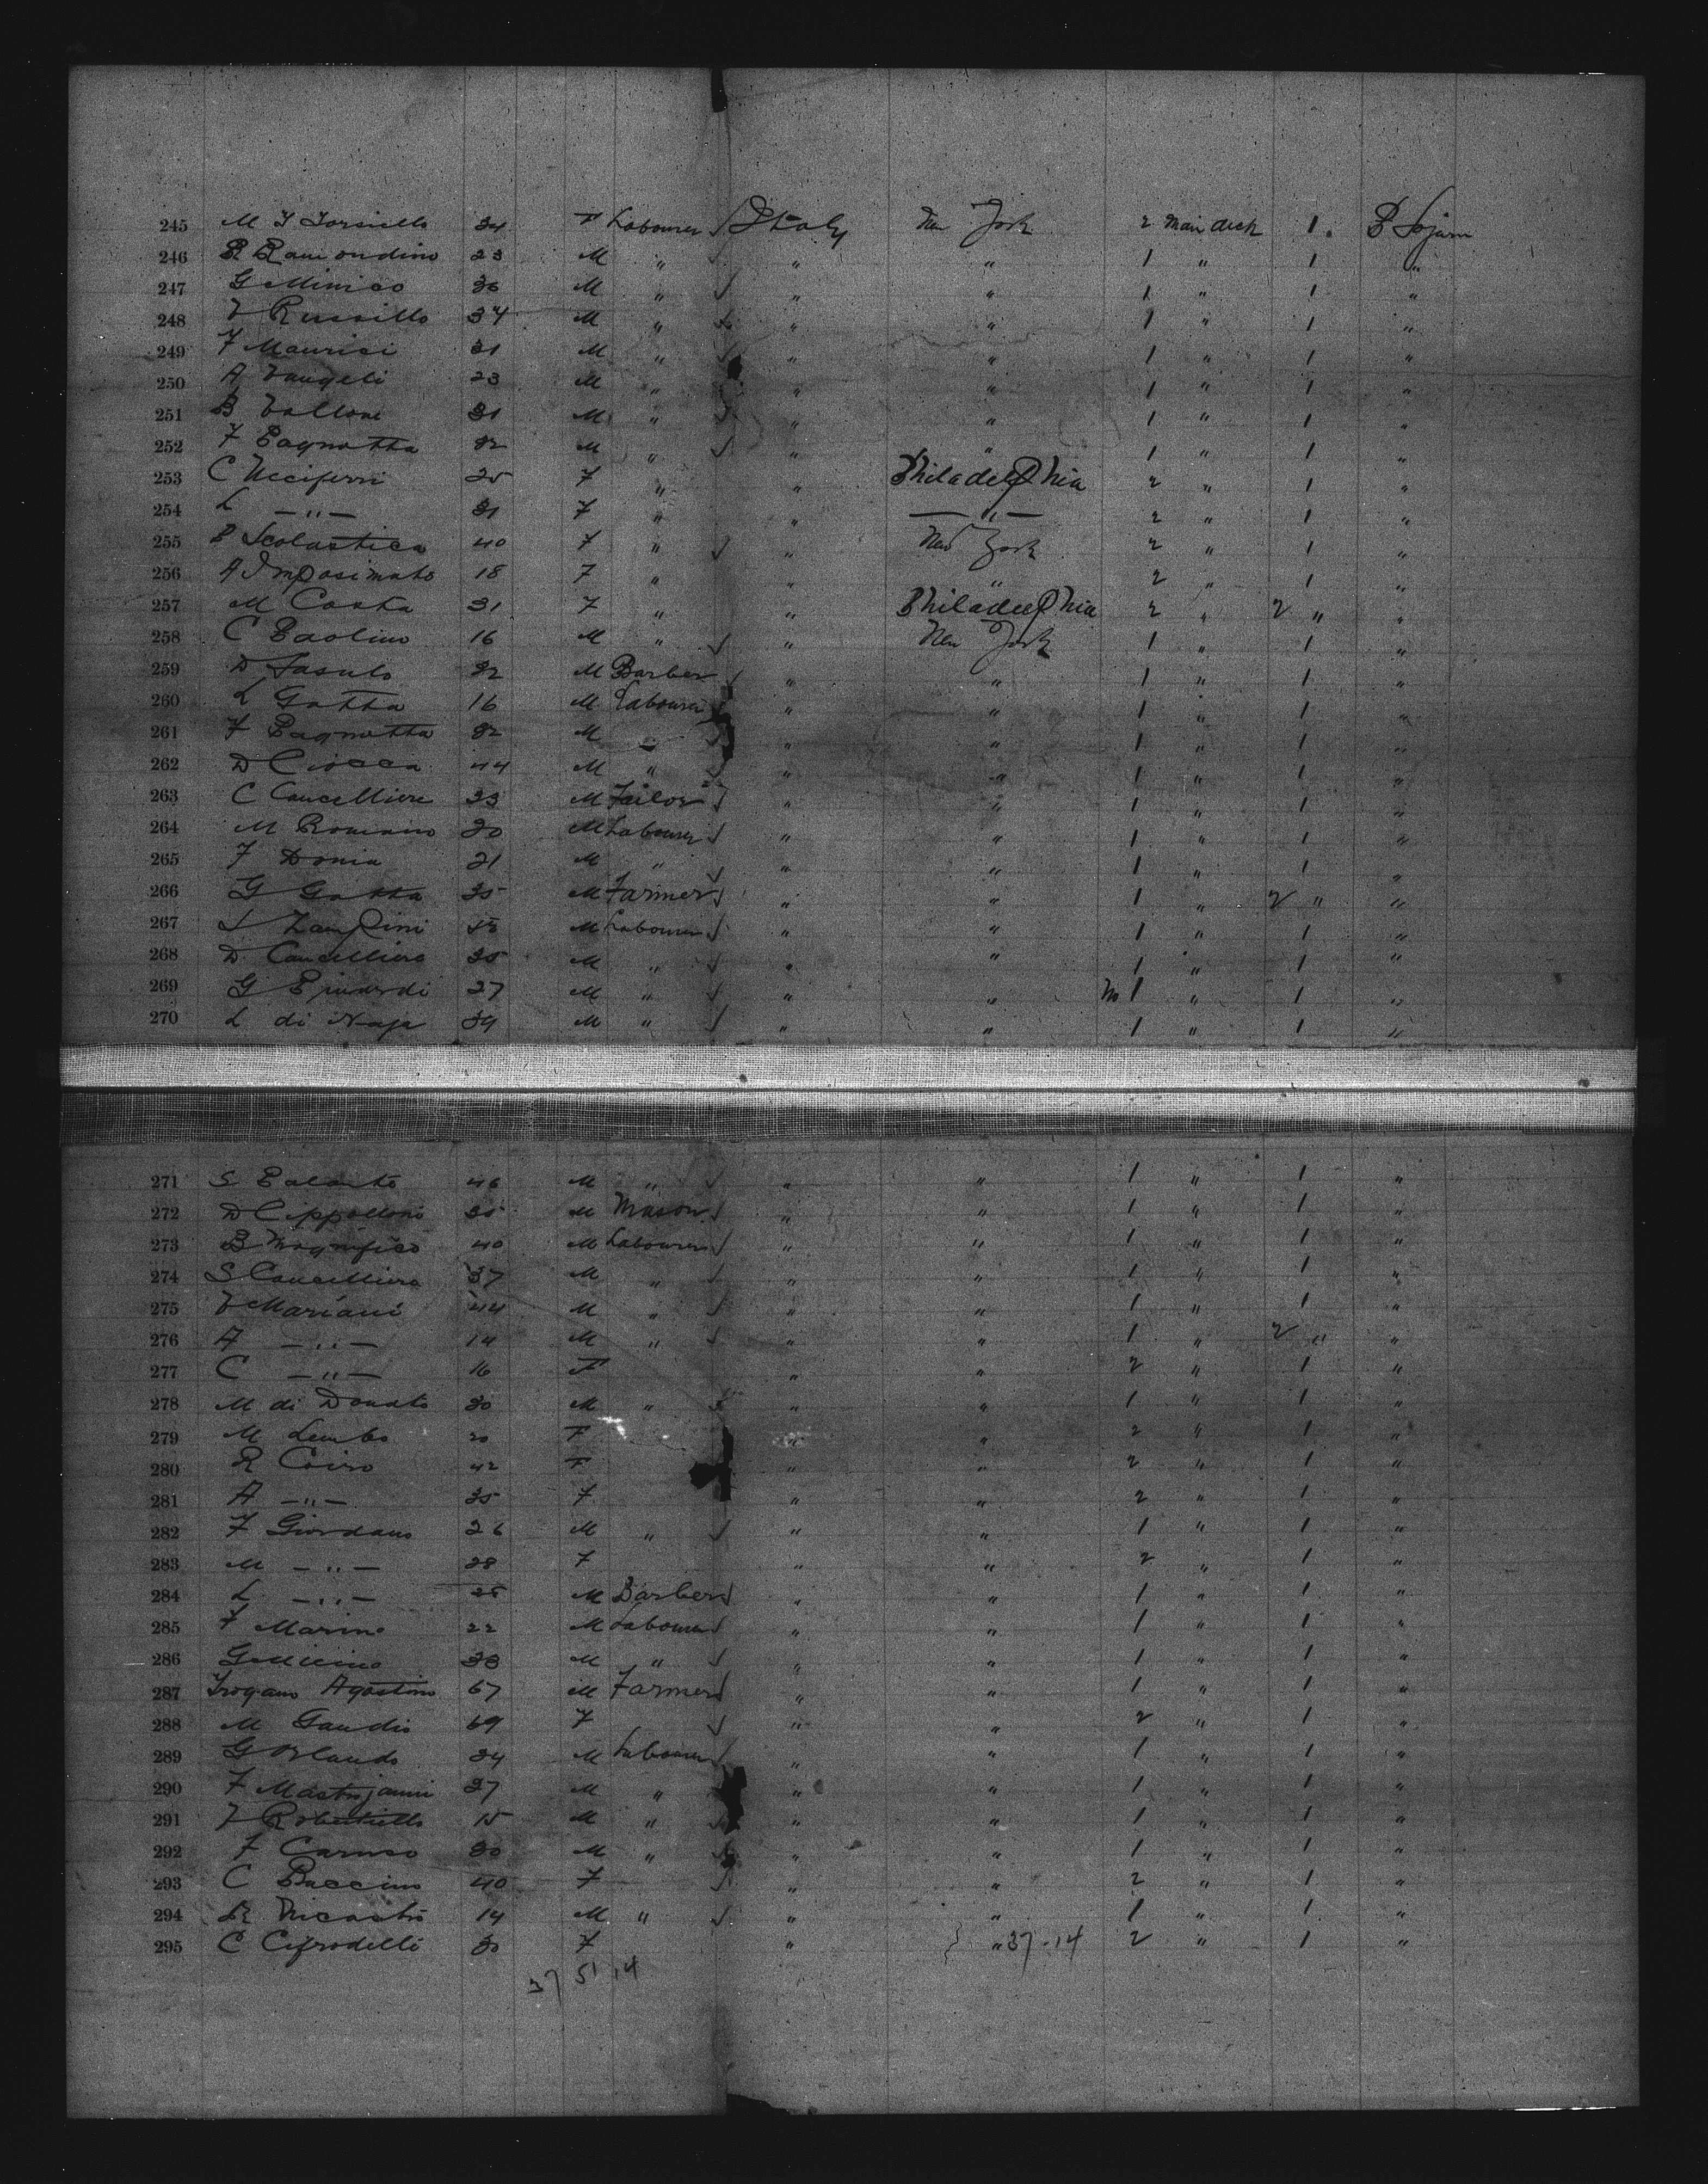 245 M F Torsiello 34 F Labourer √ Italy New York 2 Main deck 1. P Sojurn
246 R Raimondino 23 M " √ " " 1 " 1 "
247 G Minico 36 M " √ " " 1 " 1 "
248 V Russillo 34 M " √ " " 1 " 1 "
249 F Maurici 31 M " √ " " 1 " 1 "
250 A Vangeli 23 M " √ " " 1 " 1 "
251 B Vallone 31 M " √ " " 1 " 1 "
252 F Pagnotta 32 M " √ " " 1 " 1 "
253 C Ucciferri 25 F " " Philadelphia 2 " 1 "
254 L —"— 31 F " " —"— 2 " 1 "
255 P Scolastica 40 F " √ " New York 2 " 1 "
256 A Imposimato 18 F " " " 2 " 1 "
257 M Costa 31 F " " Philadelphia 2 " 2 " "
258 C Paolino 16 M " √ " New York 1 " 1 "
259 D Fasulo 32 M Barber √ " " 1 " 1 "
260 L Gatta 16 M Labourer √ " " 1 " 1 "
261 F Pagnotta 32 M " √ " " 1 " 1 "
262 D Ciocca 44 M " √ " " 1 " 1 "
263 C Cancelliere 33 M Tailor √ " " 1 " 1 "
264 M Romano 30 M Labourer √ " " 1 " 1 "
265 F Donia 21 M " √ " " 1 " 1 "
266 G Gatta 35 M Farmer √ " " 1 " 2 " "
267 Zampini M Labourer √ " " 1 " 1 "
268 D Cancelliere 35 M " √ " " 1 " 1 "
269 G 27 M " √ " " No 1 " 1 "
270 L di Naja 39 M " √ " " 1 " 1 "
271 S 46 M " √ " " 1 " 1 "
272 D Cippolloni 35 M Mason √ " " 1 " 1 "
273 B Magnifico 40 M Labourer √ " " 1 " 1 "
274 S Cancelliere 37 M " √ " " 1 " 1 "
275 V Mariani 44 M " √ " " 1 " 1 "
276 A —"— 14 M " √ " " 1 " 2 " "
277 C —"— 16 F " " 2 " 1 "
278 M di Donato 30 M " √ " " 1 " 1 "
279 M Lembo 20 F " " 2 " 1 "
280 R Cairo 42 F " " 2 " 1 "
281 A —"— 35 F " " 2 " 1 "
282 F Giordano 26 M " √ " " 1 " 1 "
283 M —"— 28 F " " 2 " 1 "
284 L —"— 25 M Barber √ " " 1 " 1 "
285 F Marino 22 M Labourer √ " " 1 " 1 "
286 G 33 M " √ " " 1 " 1 "
287 Trogano Agostino 67 M Farmer √ " " 1 " 1 "
288 M Gaudio 69 F √ " " 2 " 1 "
289 G Orlando 34 M Labourer √ " " 1 " 1 "
290 F Mastrojanni 37 M " √ " " 1 " 1 "
291 V Robertiello 15 M " √ " " 1 " 1 "
292 F Caruso 30 M " √ " " 1 " 1 "
293 C Puccino 40 F √ " " 2 " 1 "
294 R Nicastro 14 M " √ " " 1 " 1 "
295 C Cifrodelli 30 F " } " 37-14 2 " 1 "
37 51 14